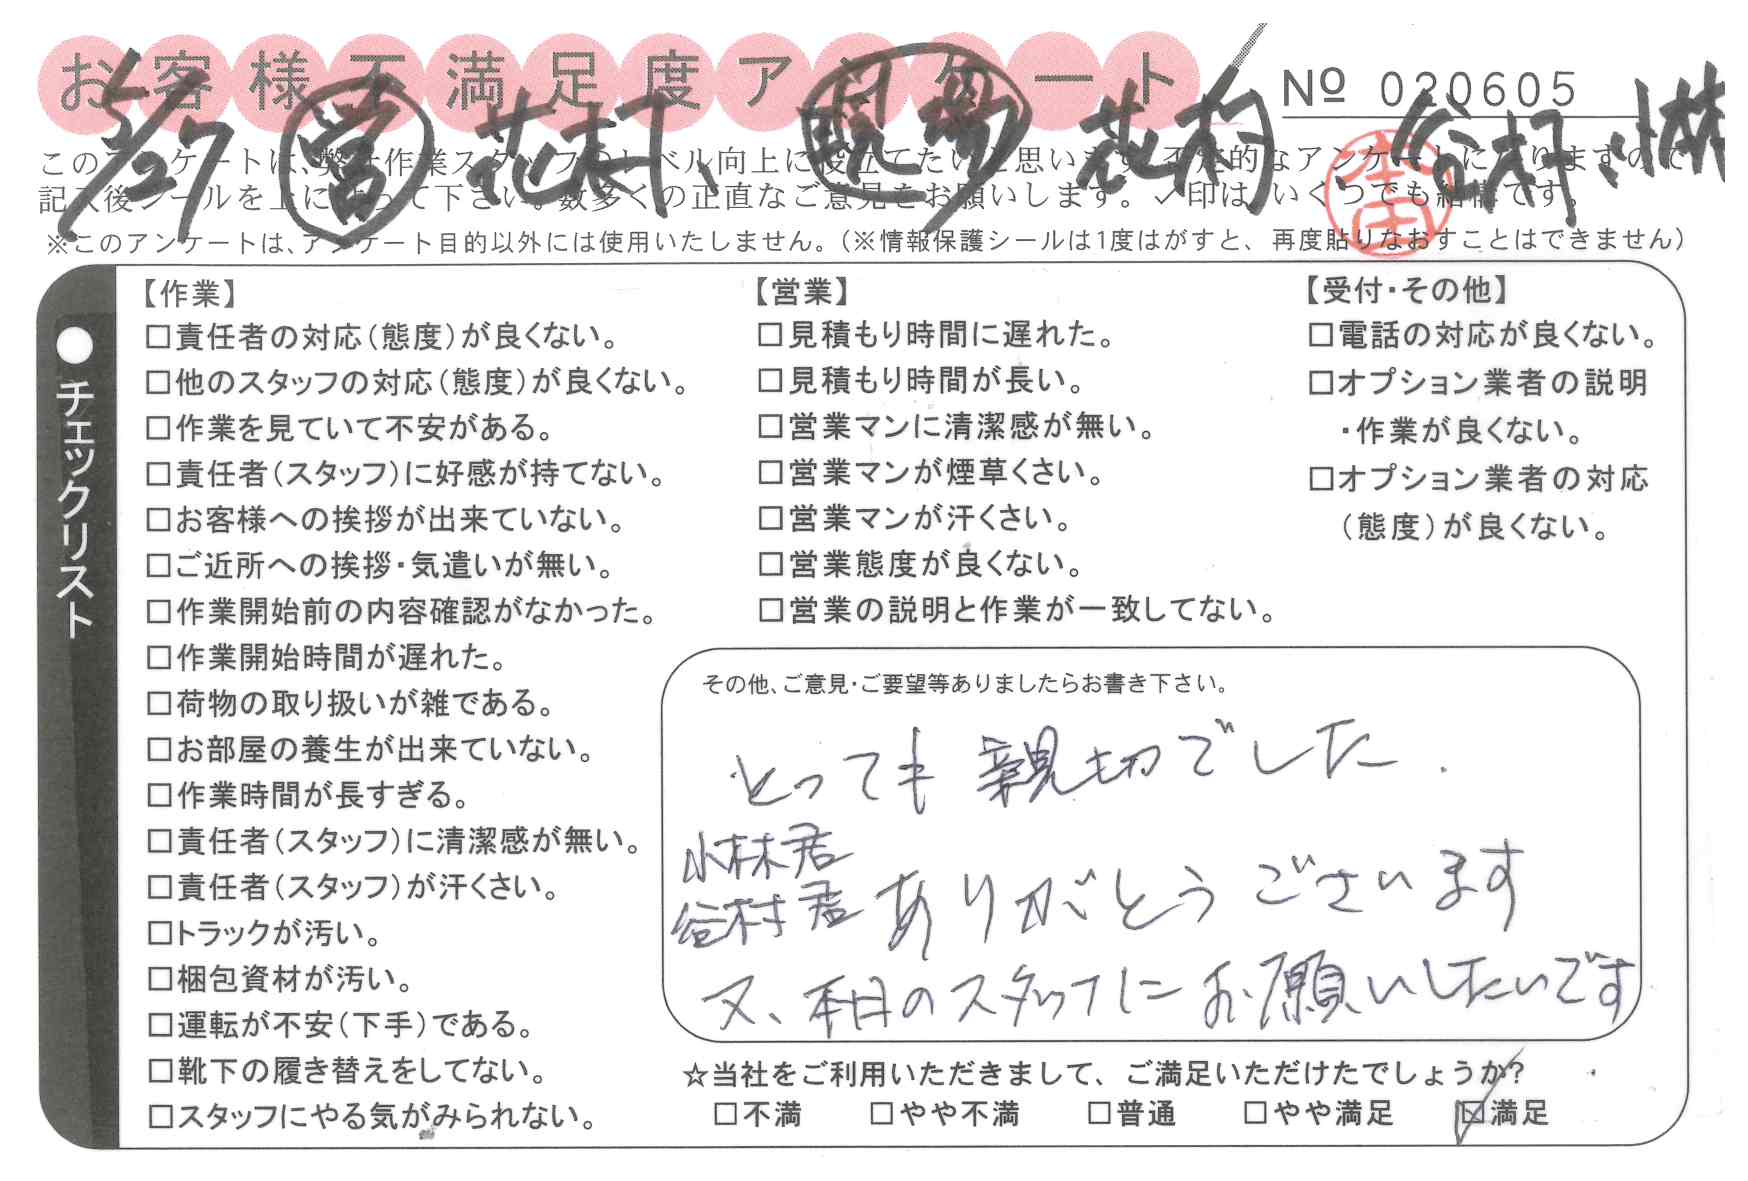 お客様不満足度アンケート
№ 020605
5/27 営 花村、 現場 花村 谷村、小林
本田
このアンケートは、弊社作業スタッフのレベル向上に役立てたいと思います。不定的なアンケートになりますので
記入後シールを上にはって下さい。数多くの正直なご意見をお願いします。✓印は、いくつでも結構です。
※このアンケートは、アンケート目的以外には使用いたしません。（※情報保護シールは1度はがすと、再度貼りなおすことはできません）
●チェックリスト
【作業】
□責任者の対応（態度）が良くない。
□他のスタッフの対応（態度）が良くない。
□作業を見ていて不安がある。
□責任者（スタッフ）に好感が持てない。
□お客様への挨拶が出来ていない。
□ご近所への挨拶・気遣いが無い。
□作業開始前の内容確認がなかった。
□作業開始時間が遅れた。
□荷物の取り扱いが雑である。
□お部屋の養生が出来ていない。
□作業時間が長すぎる。
□責任者（スタッフ）に清潔感が無い。
□責任者（スタッフ）が汗くさい。
□トラックが汚い。
□梱包資材が汚い。
□運転が不安（下手）である。
□靴下の履き替えをしてない。
□スタッフにやる気がみられない。
【営業】
□見積もり時間に遅れた。
□見積もり時間が長い。
□営業マンに清潔感が無い。
□営業マンが煙草くさい。
□営業マンが汗くさい。
□営業態度が良くない。
□営業の説明と作業が一致してない。
【受付・その他】
□電話の対応が良くない。
□オプション業者の説明
・作業が良くない。
□オプション業者の対応
（態度）が良くない。
その他、ご意見・ご要望等ありましたらお書き下さい。
とっても親切でした.
小林君
谷村君 ありがとうございます
又、本日のスタッフにお願いしたいです
☆当社をご利用いただきまして、ご満足いただけたでしょうか?
□不満 □やや不満 □普通 □やや満足 ☑満足